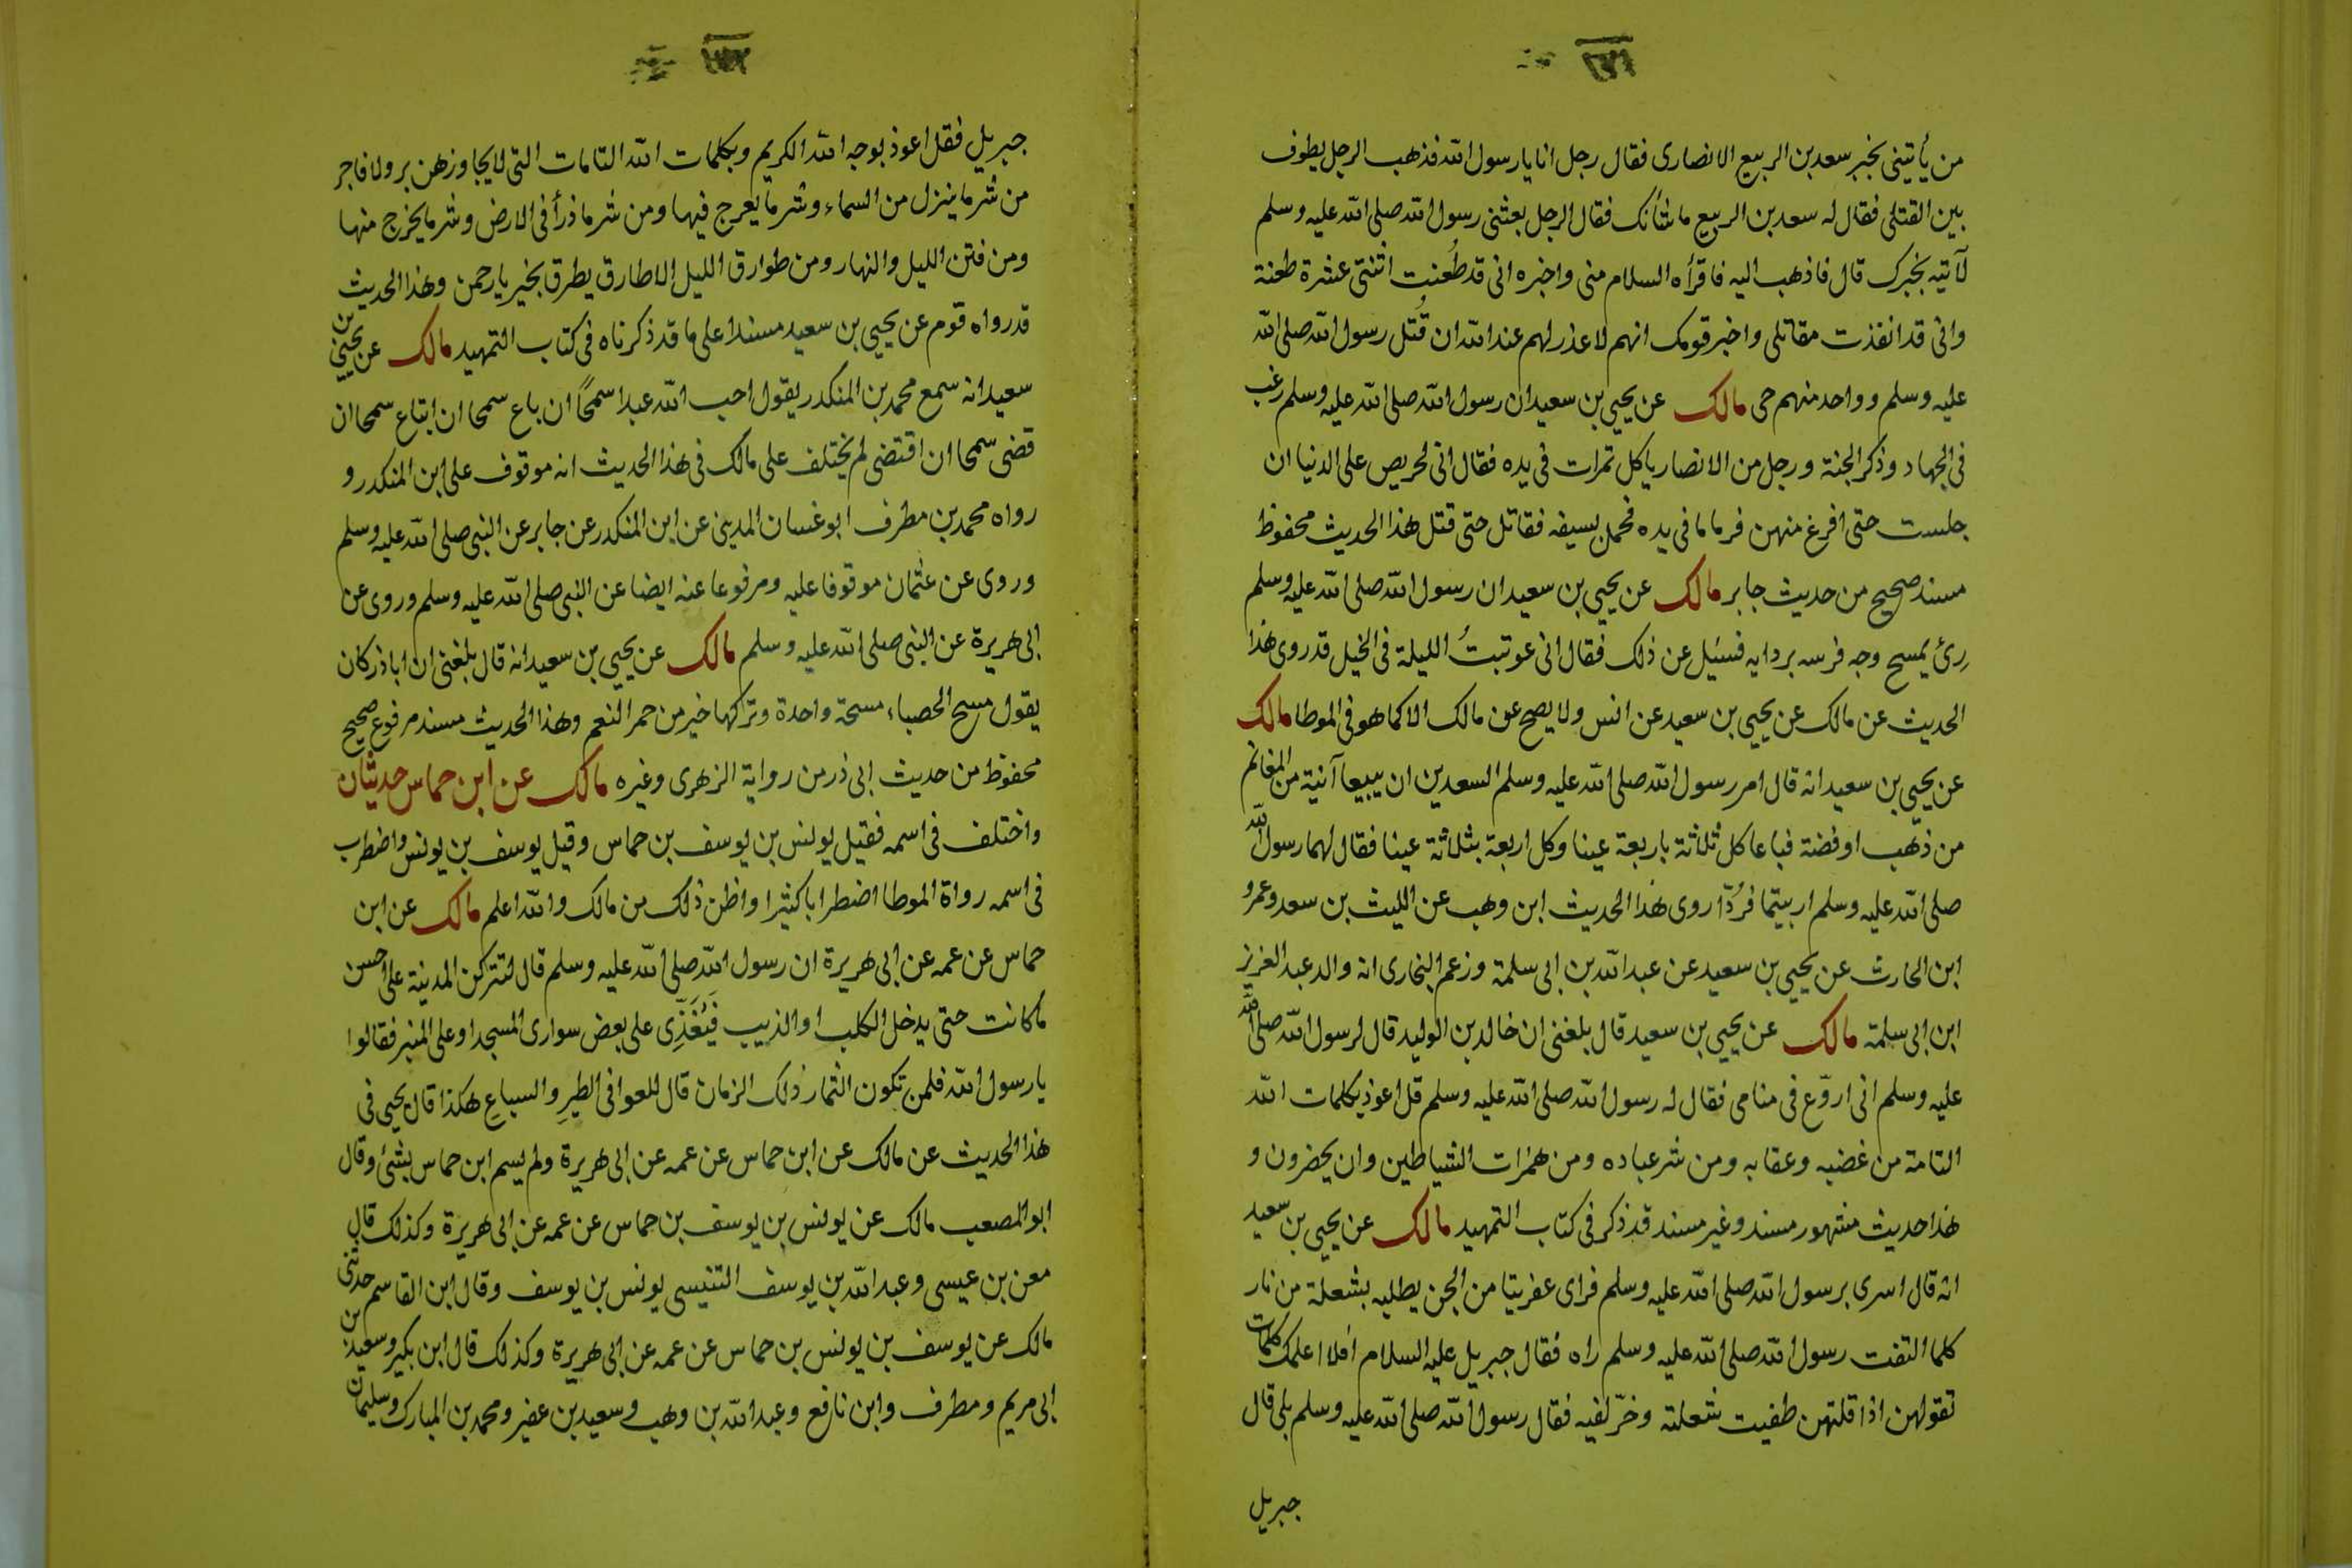 من يأتينى بخبر سعد بن الربيع الانصارى فقال رجل انا يا رسول الله فذهب الرجل يطوف
بين القتلى فقال له سعد بن الربيع ما شأنك فقال الرجل بعثنى رسول الله صلى الله عليه وسلم
لآتيه بخبرك قال فاذهب اليه فاقرأه السلام منى واخبره انى قد طُعنت اثنتى عشرة طعنة
وانى قد انفذت مقاتلى واخبر قومك انهم لا عذر لهم عند الله ان قُتل رسول الله صلى الله
عليه وسلم وواحد منهم حى مالك عن يحيى بن سعيد ان رسول الله صلى الله عليه وسلم رغب
فى الجهاد وذكر الجنة ورجل من الانصار ياكل تمرات فى يده فقال انى لحريص على الدنيا ان
جلست حتى افرغ منهن فرما ما فى يده فحمل بسيفه فقاتل حتى قتل هذا الحديث محفوظ
مسند صحيح من حديث جابر مالك عن يحيى بن سعيد ان رسول الله صلى الله عليه وسلم
رِئ يمسح وجه فرسه بردايه فسئيل عن ذلك فقال انى عوتبتُ الليلة فى الخيل قد روى هذا
الحديث عن مالك عن يحيى بن سعيد عن انس ولا يصح عن مالك الا كما هو فى الموطا مالك
عن يحيى بن سعيد انه قال امر رسول الله صلى الله عليه وسلم السعدين ان يبيعا آنية من المغانم
من ذهب او فضة فباعا كل ثلاثة باربعة عينا وكل اربعة بثلاثة عينا فقال لهما رسول الله
صلى الله عليه وسلم اربيتما فرُدّا روى هذا الحديث ابن وهب عن الليث بن سعد وعمرو
ابن الحارث عن يحيى بن سعيد عن عبد الله بن ابى سلمة وزعم البخارى انه والد عبد العزيز
ابن ابى سلمة مالك عن يحيى بن سعيد قال بلغنى ان خالد بن الوليد قال لرسول الله صلى الله
عليه وسلم انى اروّع فى منامى فقال له رسول الله صلى الله عليه وسلم قل اعوذ بكلمات الله
التامة من غضبه وعقابه ومن شر عباده ومن همزات الشياطين وان يحضرون و
هذا حديث مشهور مسند وغير مسند قد ذكر فى كتاب التمهيد مالك عن يحيى بن سعيد
انه قال اسرى برسول الله صلى الله عليه وسلم فراى عفريتا من الجن يطلبه بشعلة من نار
كلما التفت رسول الله صلى الله عليه وسلم راه فقال جبريل عليه السلام افلا اعلمك كلمات
تقولهن اذا قلتهن طفيت شعلته وخرّ لفيه فقال رسول الله صلى الله عليه وسلم بلى قال
جبريل
جبريل فقل اعوذ بوجه الله الكريم وبكلمات الله التامات التى لا يجاوزهن بر ولا فاجر
من شر ما ينزل من السماء وشر ما يعرج فيها ومن شر ما ذرأ فى الارض وشر ما يخرج منها
ومن فتن الليل والنهار ومن طوارق الليل الا طارق يطرق بخير يا رحمن وهذا الحديث
قد رواه قوم عن يحيى بن سعيد مسندا على ما قد ذكرناه فى كتاب التمهيد مالك عن يحيى بن
سعيد انه سمع محمد بن المنكدر يقول احب الله عبدا سمحًا ان باع سمحا ان ابتاع سمحا ان
قضى سمحا ان اقتضى لم يختلف على مالك فى هذا الحديث انه موقوف على ابن المنكدر و
رواه محمد بن مطرف ابو غسان المدينى عن ابن المنكدر عن جابر عن النبى صلى الله عليه وسلم
وروى عن عثمان موقوفا عليه ومرفوعا عنه ايضا عن النبى صلى الله عليه وسلم وروى عن
ابى هريرة عن النبى صلى الله عليه وسلم مالك عن يحيى بن سعيد انه قال بلغنى ان ابا ذر كان
يقول مسح الحصباء مسحة واحدة وتركها خير من حمر النعم وهذا الحديث مسند مرفوع صحيح
محفوظ من حديث ابى ذر من رواية الزهرى وغيره مالك عن ابن حماس حديثان
واختلف فى اسمه فقيل يونس بن يوسف بن حماس وقيل يوسف بن يونس واضطرب
فى اسمه رواة الموطا اضطرابا كثيرا واظن ذلك من مالك والله اعلم مالك عن ابن
حماس عن عمه عن ابى هريرة ان رسول الله صلى الله عليه وسلم قال لتتركن المدينة على احسن
ما كانت حتى يدخل الكلب او الذيب فَيُغَذِّى على بعض سوارى المسجد او على المنبر فقالوا
يا رسول الله فلمن تكون الثمار ذلك الزمان قال للعوافى الطيرِ والسباعِ هكذا قال يحيى فى
هذا الحديث عن مالك عن ابن حماس عن عمه عن ابى هريرة ولم يسم ابن حماس بشئ وقال
ابو المصعب مالك عن يونس بن يوسف بن حماس عن عمه عن ابى هريرة وكذلك قال
معن بن عيسى وعبد الله بن يوسف التنيسى يونس بن يوسف وقال ابن القاسم حدثنى
مالك عن يوسف بن يونس بن حماس عن عمه عن ابى هريرة وكذلك قال ابن بكير وسعيد بن
ابى مريم ومطرف وابن نافع وعبد الله بن وهب وسعيد بن عفير ومحمد بن المبارك وسليمان